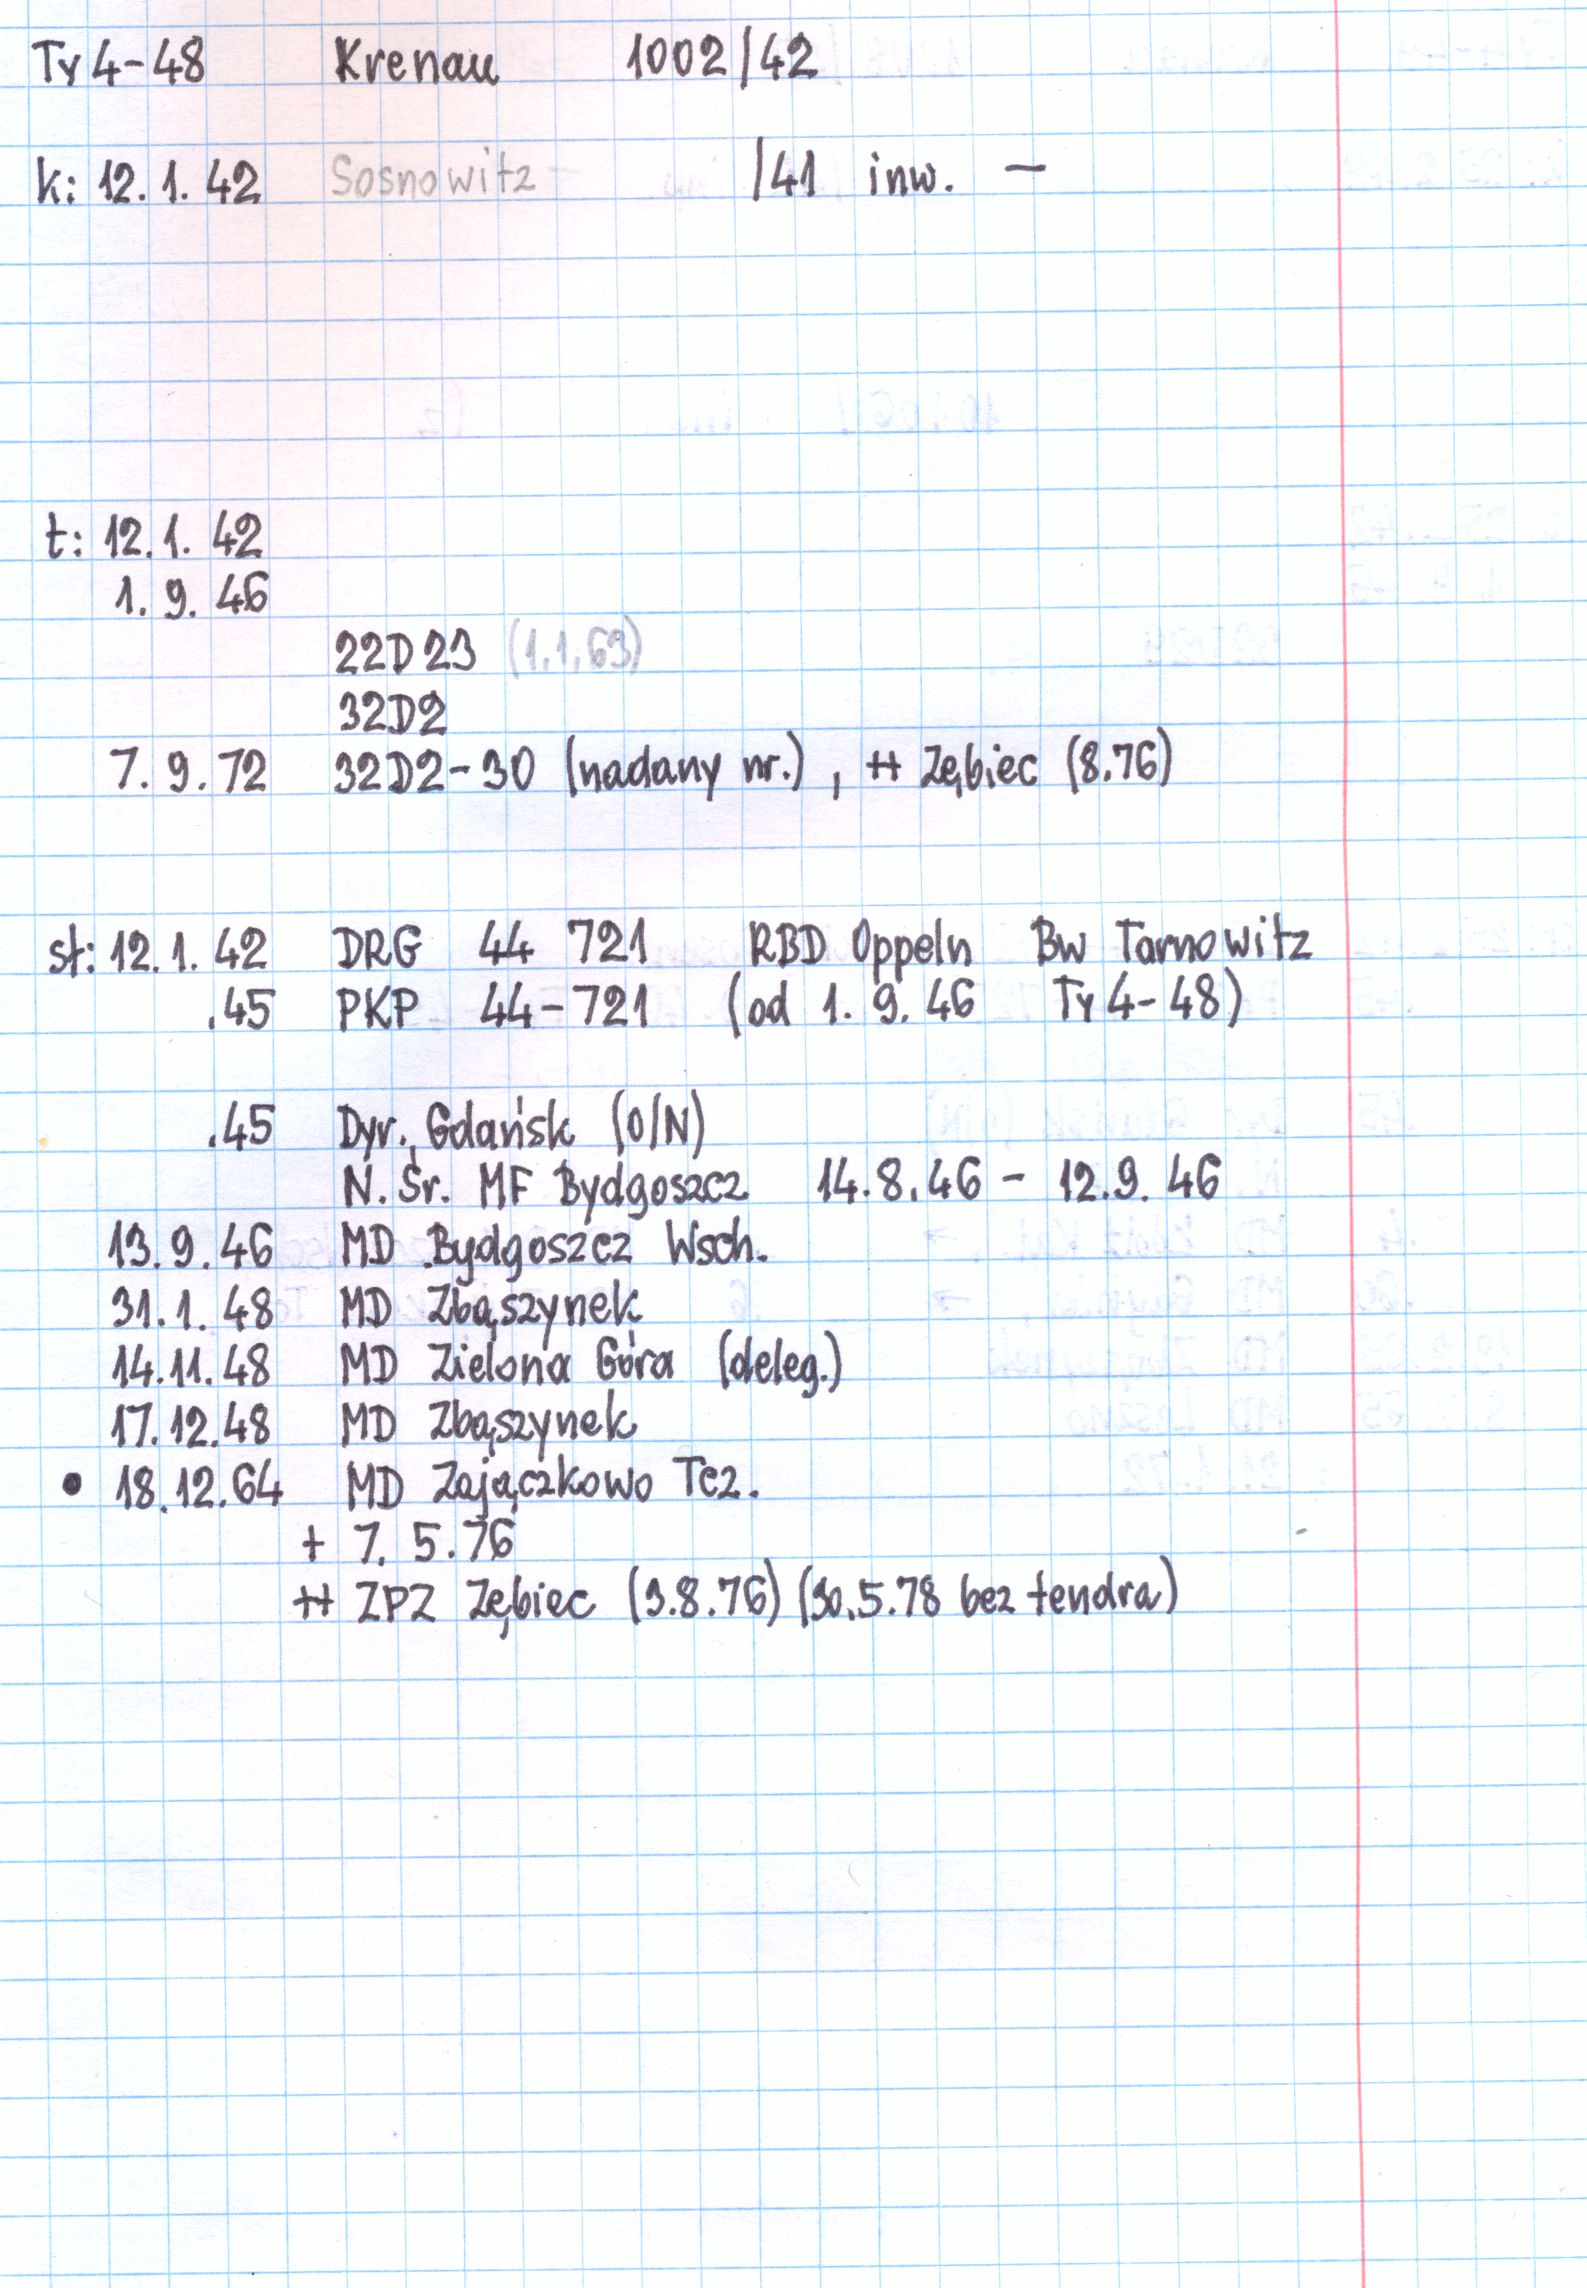 Ty 4-48 Krenau 1002/42
k: 12. 1. 42 Sosnowitz /41 inw. —
t: 12. 1. 42
1. 9. 46
22D23 (1.1.63)
32D2
7. 9. 72 32D2-30 (nadany nr.) , ++ Zębiec (8.76)
st: 12. 1. 42 DRG 44 721 RBD Oppeln Bw Tarnowitz
.45 PKP 44-721 (od 1. 9. 46 Ty 4-48)
.45 Dyr. Gdańsk (O/N)
N. Śr. MF Bydgoszcz 14.8.46 - 12.9.46
13. 9. 46 MD Bydgoszcz Wsch.
31. 1. 48 MD Zbąszynek
14.11.48 MD Zielona Góra (deleg.)
17.12.48 MD Zbąszynek
• 18.12.64 MD Zajączkowo Tcz.
+ 7. 5. 76
++ ZPZ Zębiec (3.8.76) (30.5.78 bez tendra)